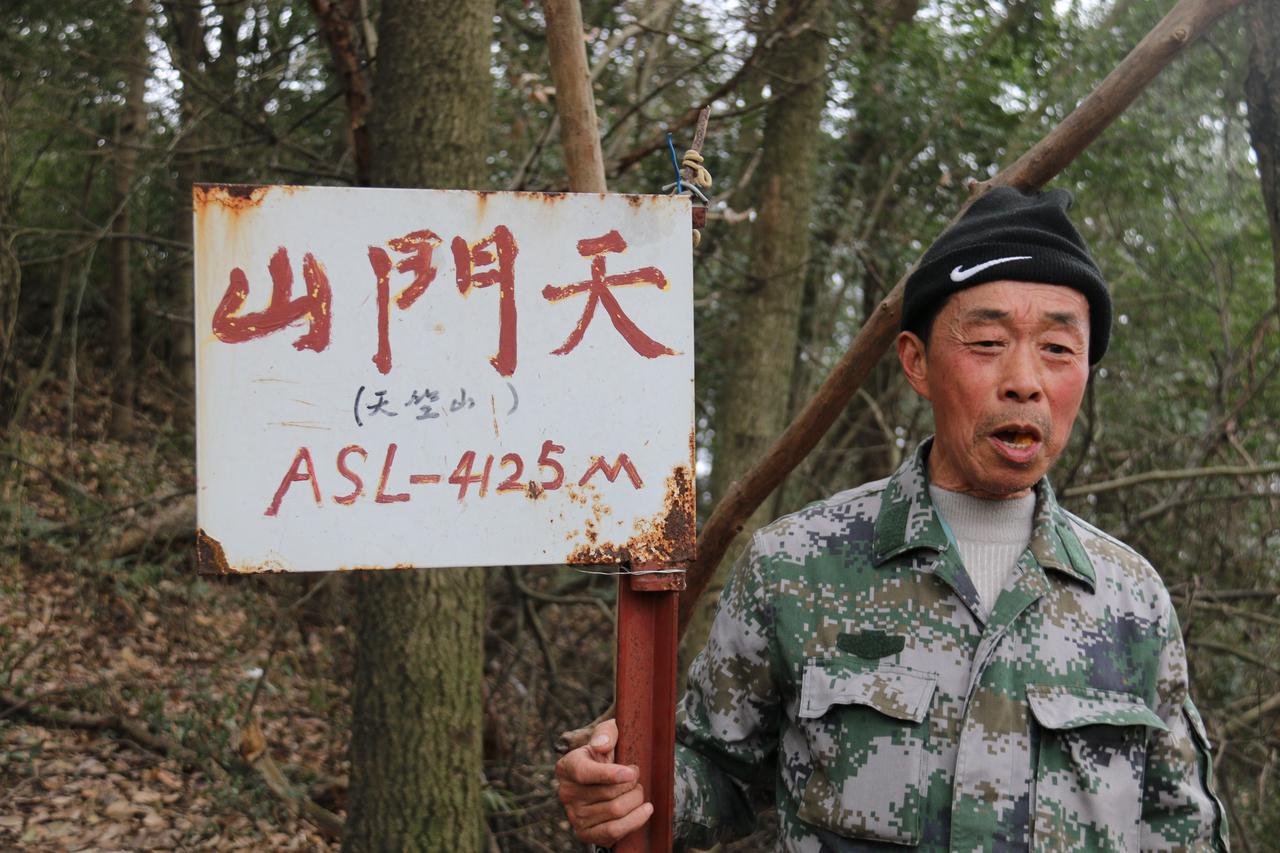 天門山
(天竺山)
ASL-4125M